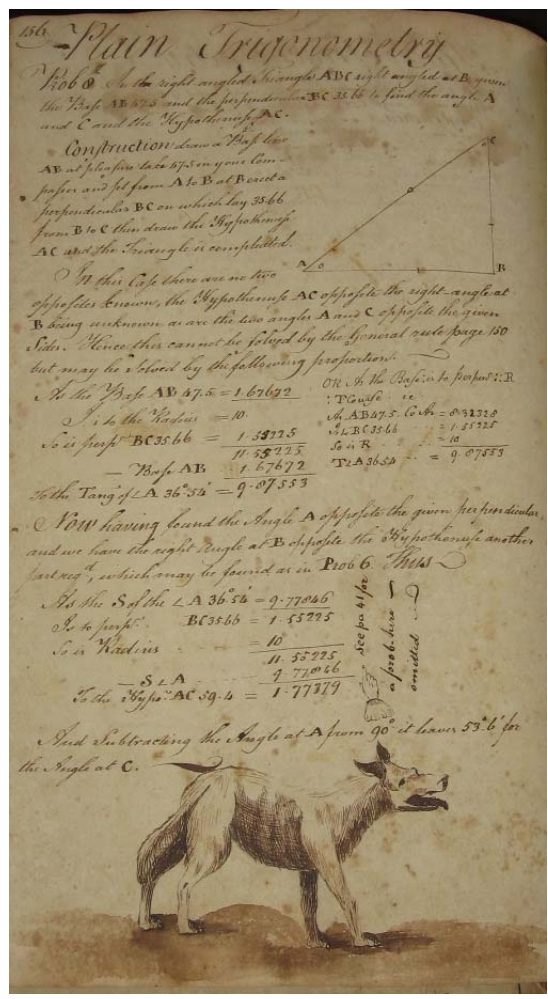 156
Plain Trigonometry
Prob 8th In the right angled Triangle ABC right angled at B, given
the Base AB 47.5 and the perpendicular BC 35.66 to find the angle A
and C and the Hypothenuse AC.
Construction draw a Base line
AB at pleasure take 47.5 in your Com-
passes and set from A to B at B erect a
perpendicular BC on which lay 35.66
from B to C then draw the Hypothenuse
AC and the Triangle is compleated.
C
A
B
In this Case there are no two
opposites known, the Hypothenuse AC opposite the right-angle at
B being unknown as are the two angles A and C opposite the given
Sides. Hence this cannot be solved by the General rule page 150
but may be solved by the following proportion.
As the Base AB 47.5 = 1.67672
Is to the Radius = 10.
So is perpr BC 35.66 = 1.55225
11.55225
— Base AB 1.67672
To the Tang of ∠A 36°.54' = 9.87553
OR As the Base is to perpenr :: R
: T Course ie
As AB 47.5 Co Ar = 8.32328
Is ∠ BC 35.66 = 1.55225
So is R = 10
T∠A 36.54 = 9.87553
Now having found the Angle A opposite the given perpendicular,
and we have the right Angle at B opposite the Hypothenuse another
part reqd, which may be found as in Prob 6 Thus
As the S of the ∠A 36°.54' = 9.77846
Is to perpr. BC 35.66 = 1.55225
So is Radius = 10
11.55225
— S ∠A 9.77846
To the Hypo. AC 59.4 = 1.77379
See pa 41 for
a prob. here
omitted
And Subtracting the Angle at A from 90° it leaves 53°.6' for
the Angle at C.